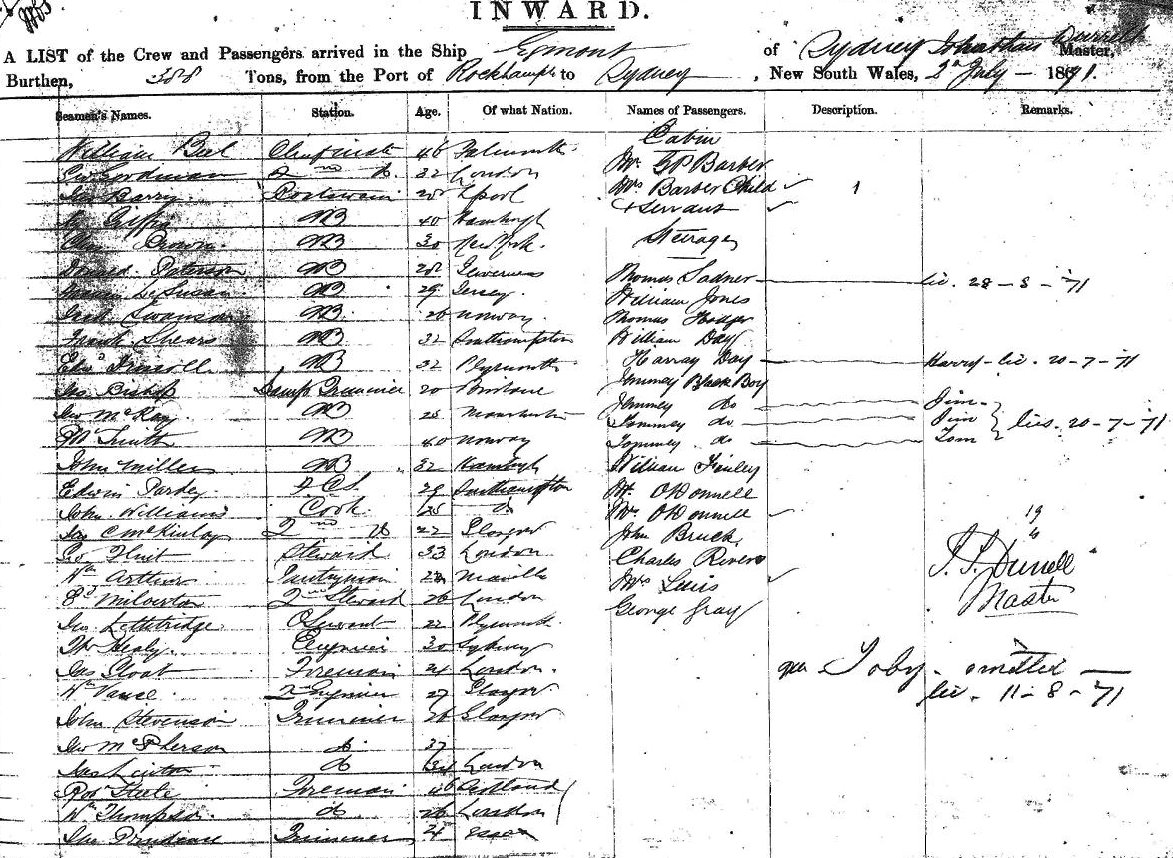 INWARD.
A LIST of the Crew and Passengers arrived in the Ship Egmont of Sydney Johnathan Durrell Master,
Burthen, 388 Tons, from the Port of Rockhampn to Sydney, New South Wales, 2d July – 1871.
Seamen's Names. Station. Age. Of what Nation. Names of Passengers. Description. Remarks.
Cabin
William Bell 46 Falmouth Mr. G P Barber
Geo Goodman 2nd do. 32 London Mrs Barber Child 1
Jas Barry Boatswain 28 Lpool + Servant
AB 40 Hamburgh
Chas Brown AB 30 New York Steerage
Donald Paterson AB 28 Inverness Thomas Sadner lic. 28 - 8 - 71
AB 29 Jersey. William Jones
Swanson AB 26 Norway. Thomas Hodger
Frank Shears AB 32 Southampton William Day
Edwd Driscoll AB 32 Plymouth Harray Day Harry - lic. 20 - 7 - 71
Jas Bishop Lamp Trimmer 20 Brisbane Jemmey Black Boy
Geo McKay AB 25 Manchester Jemmey do Jim
Wm Smith AB 40 Norway Tommey do Jim lics. 20 - 7 - 71
John Miller AB 32 Hamburgh Tommey do Tom
Edwin Pardey 29 Southampton William Finley
John Williams Cook 25 do Mr. O'Donnell
Jas C McKinlay 2nd do 22 Glasgow Mrs O'Donnell 19
Geo Flint Steward 33 London John Bruck
Wm Arthur Pantryman 22 Manilla Charles Rivers J. J. Durrell
Ed Milverton 2nd Steward 26 London Mrs Luis Master
Geo Lethbridge Servant 22 Plymouth George Gray
Thos Healy. Engineer 30 Sydney
Jas Sloat Foreman 24 London. Toby - omitted
Wm Vance 2nd Engineer 27 Glasgow lic - 11 - 8 - 71
John Stevenson Trimmer 26 Glasgow
Geo McPherson do 37
Jas Linton do 34 London
Robt Steele Foreman 46 Scotland
Wm Thompson. do 26 London
Trimmer 24